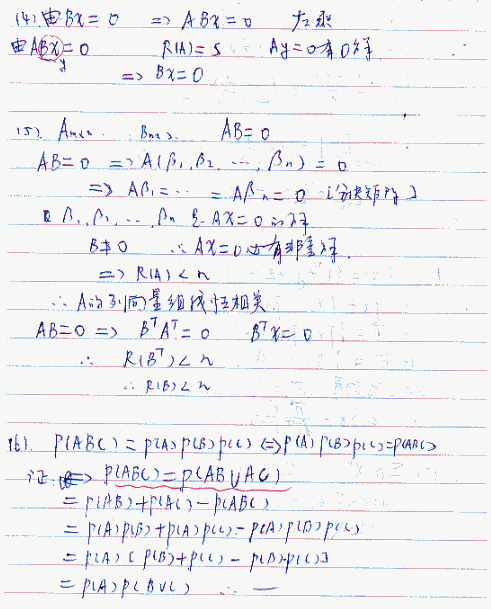 (4) 由Bx=0 ⇒ ABx=0 左乘
由ABx=0 R(A)=s Ay=0有0解
y
⇒ Bx=0
(5). Am×n. Bn×s. AB=0
AB=0 ⇒ A(β1, β2, ⋯, βn)=0
⇒ Aβ1=⋯ =Aβn=0 [分块矩阵]
β1, β2, ⋯, βn 是 AX=0 的解
B≠0 ∴ AX=0必有非零解.
⇒ R(A)<n
∴ A的列向量组线性相关.
AB=0 ⇒ BᵀAᵀ=0 Bᵀx=0
∴ R(Bᵀ)<n
∴ R(B)<n
(6). P(ABC)=P(A)P(B)P(C) ⇔ P(A)P(B)P(C)=P(ABC)
证: ⇒ P(ABC)=P(AB∪AC)
=P(AB)+P(AC)-P(ABC)
=P(A)P(B)+P(A)P(C)-P(A)P(B)P(C)
=P(A)[P(B)+P(C)-P(B)P(C)]
=P(A)P(B∪C) ∴ —